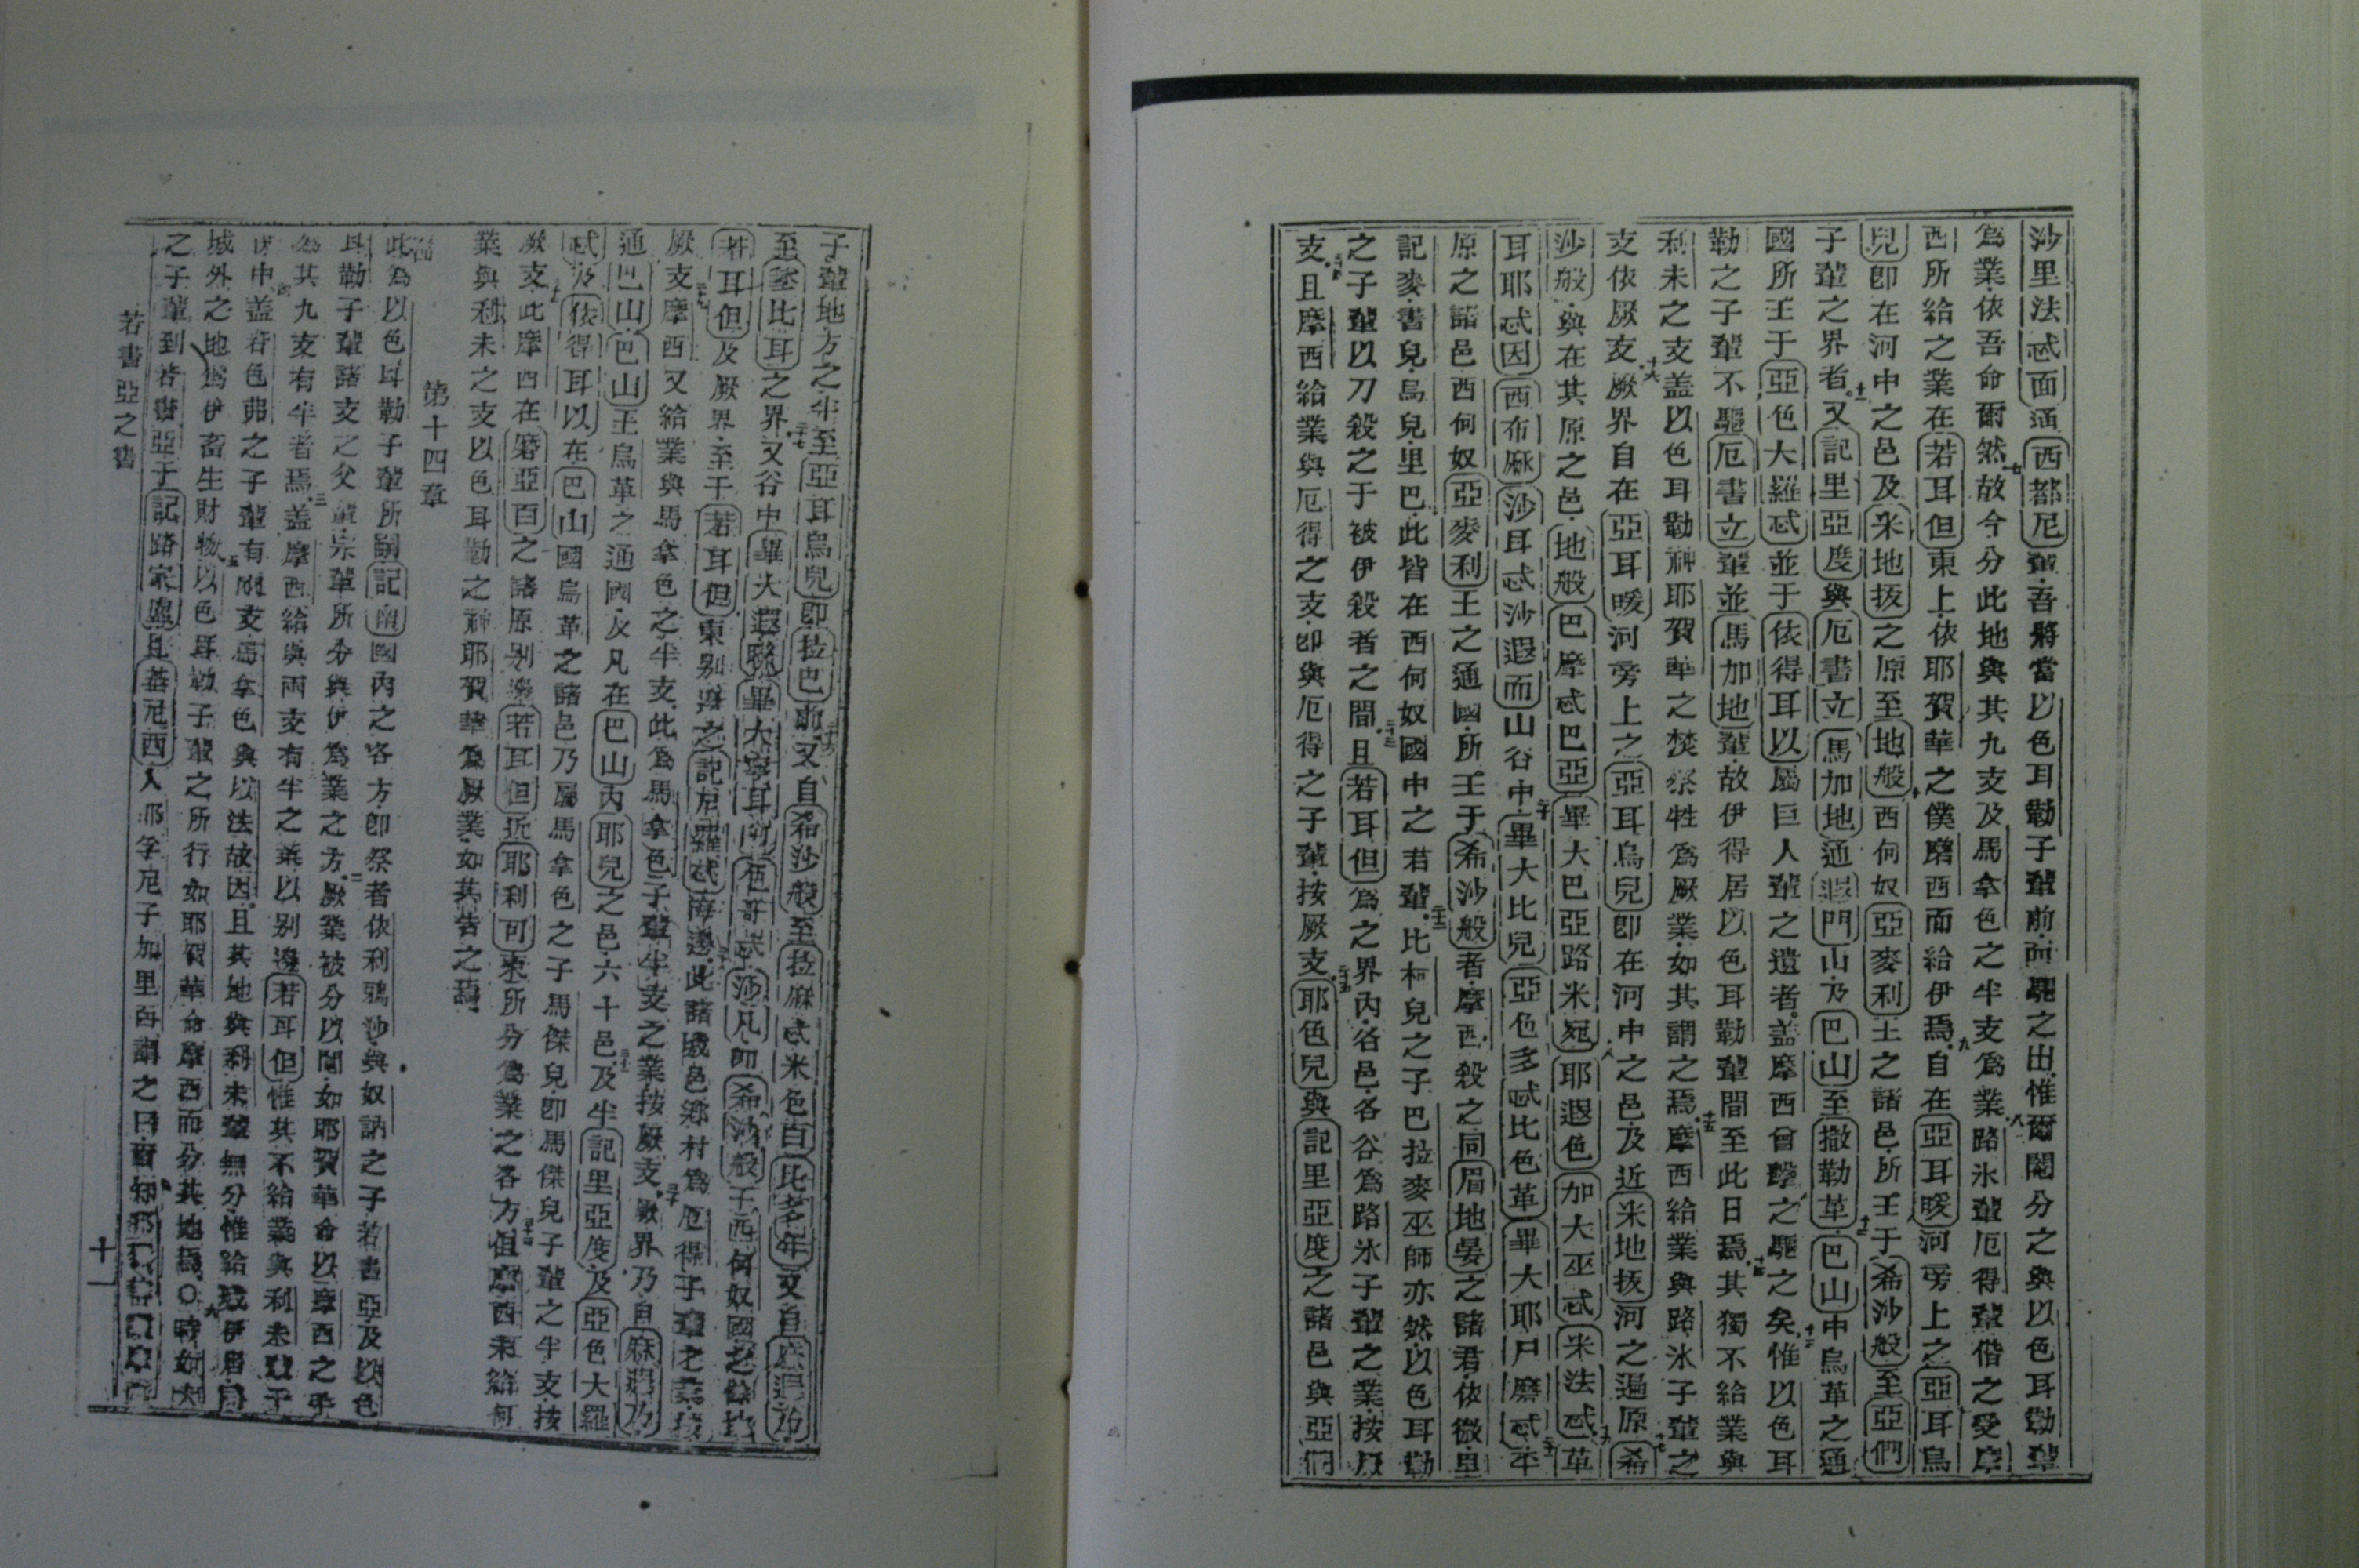 沙里法忒面通西都尼輩吾將當以色耳勒子輩前而驅之出惟爾鬮分之與以色耳勒輩
為業依吾命爾然七故今分此地與其九支及馬拿色之半支為業八路氷輩厄得輩偕之受摩
西所給之業在若耳但東上依耶賀華之僕摩西而給伊焉九自在亞耳暖河旁上之亞耳烏
兒卽在河中之邑及米地拔之原至地般十西何奴亞麥利王之諸邑所王于希沙般至亞們
子輩之界者十一又記里亞度與厄書立馬加地通遐門山乃巴山至撒勒革十二巴山中烏革之通
國所王于亞色大羅忒並于依得耳以屬巨人輩之遺者蓋摩西曾擊之驅之矣十三惟以色耳
勒之子輩不驅厄書立輩並馬加地輩故伊得居以色耳勒輩間至此日焉十四其獨不給業與
利未之支蓋以色耳勒神耶賀華之焚祭牲為厥業如其謂之焉十五摩西給業與路氷子輩之
支依厥支十六厥界自在亞耳暖河旁上之亞耳烏兒卽在河中之邑及近米地拔河之遍原十七希
沙般與在其原之邑地般巴摩忒巴亞畢大巴亞路米宛十八耶遐色加大巫忒米法忒十九革
耳耶忒因西布麻沙耳忒沙遐而山谷中二十畢大比兒亞色多忒比色革畢大耶尸磨忒二十一平
原之諸邑西何奴亞麥利王之通國所王于希沙般者摩西殺之同眉地晏之諸君依微里
記麥書兒烏兒里巴此皆在西何奴國中之君輩二十二比柯兒之子巴拉麥巫師亦然以色耳勒
之子輩以刀殺之于被伊殺者之間二十三且若耳但為之界內各邑各谷為路氷子輩之業按厥
支二十四且摩西給業與厄得之支卽與厄得之子輩按厥支二十五耶色兒與記里亞度之諸邑與亞們
子輩地方之半至亞耳烏兒卽拉巴前二十六又自希沙般至拉麻忒米色百比多年又自麻遐
至比耳之界二十七又谷中畢大遐畢大寧耳沙凡卽希沙般王西何奴國之餘
若耳但及厥界至于若耳但東別邊之記羅忒海邊二十八此諸城邑鄉村為厄得子輩之業按
厥支二十九摩西又給業與馬拿色之半支此為馬拿色子輩半支之業按厥支三十厥界乃自麻遐乃
通巴山巴山王烏革之通國及凡在巴山內耶兒之邑六十邑三十一及半記里亞度及亞色大羅
忒及依得耳以在巴山國烏革之諸邑乃屬馬拿色之子馬傑兒卽馬傑兒子輩之半支按
厥支三十二此摩西在磨亞百之諸原別邊若耳但近耶利可東所分為業之各方三十三但摩西未給何
業與利未之支以色耳勒之神耶賀華為厥業如其告之焉
第十四章
此為以色耳勒子輩所嗣記南國內之各方卽祭者依利鴉沙與奴訥之子若書亞及以色
耳勒子輩諸支之父輩宗輩所分與伊為業之方二厥業被分以鬮如耶賀華命以摩西之手
為其九支有半者焉三蓋摩西給與兩支有半之業以別邊若耳但惟其不給業與利未輩于
其中四蓋若色弗之子輩有兩支馬拿色與以法故因且其地與利未輩無分惟給城伊居同
城外之地為伊畜生財物五以色耳勒子輩之所行如耶賀華命摩西而分其地焉〇六時如大
之子輩到若書亞于記路家且基尼西人耶孚尼子加里百謂之曰
若書亞之書
十一